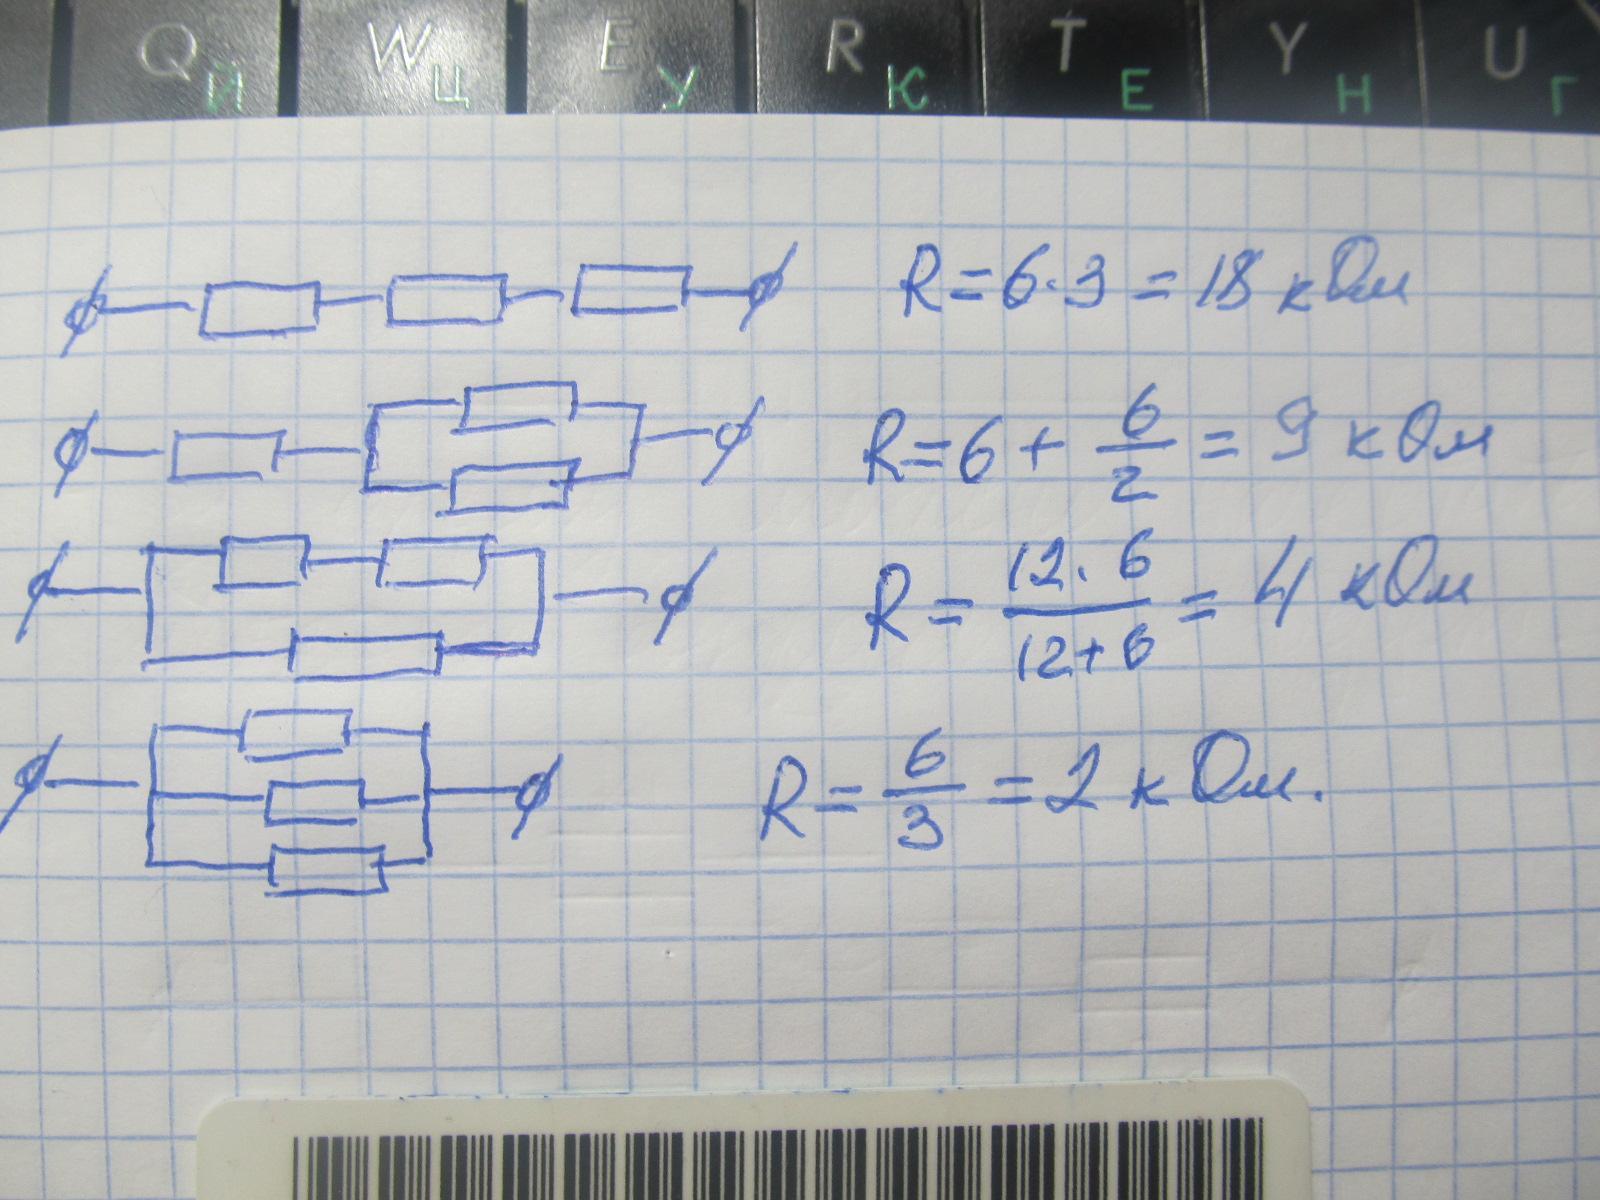 Q Й W Ц E У R К T Е Y Н U Г
R = 6 · 3 = 18 кОм
R = 6 + 6/2 = 9 кОм
R = 12 · 6 / 12 + 6 = 4 кОм
R = 6/3 = 2 кОм.